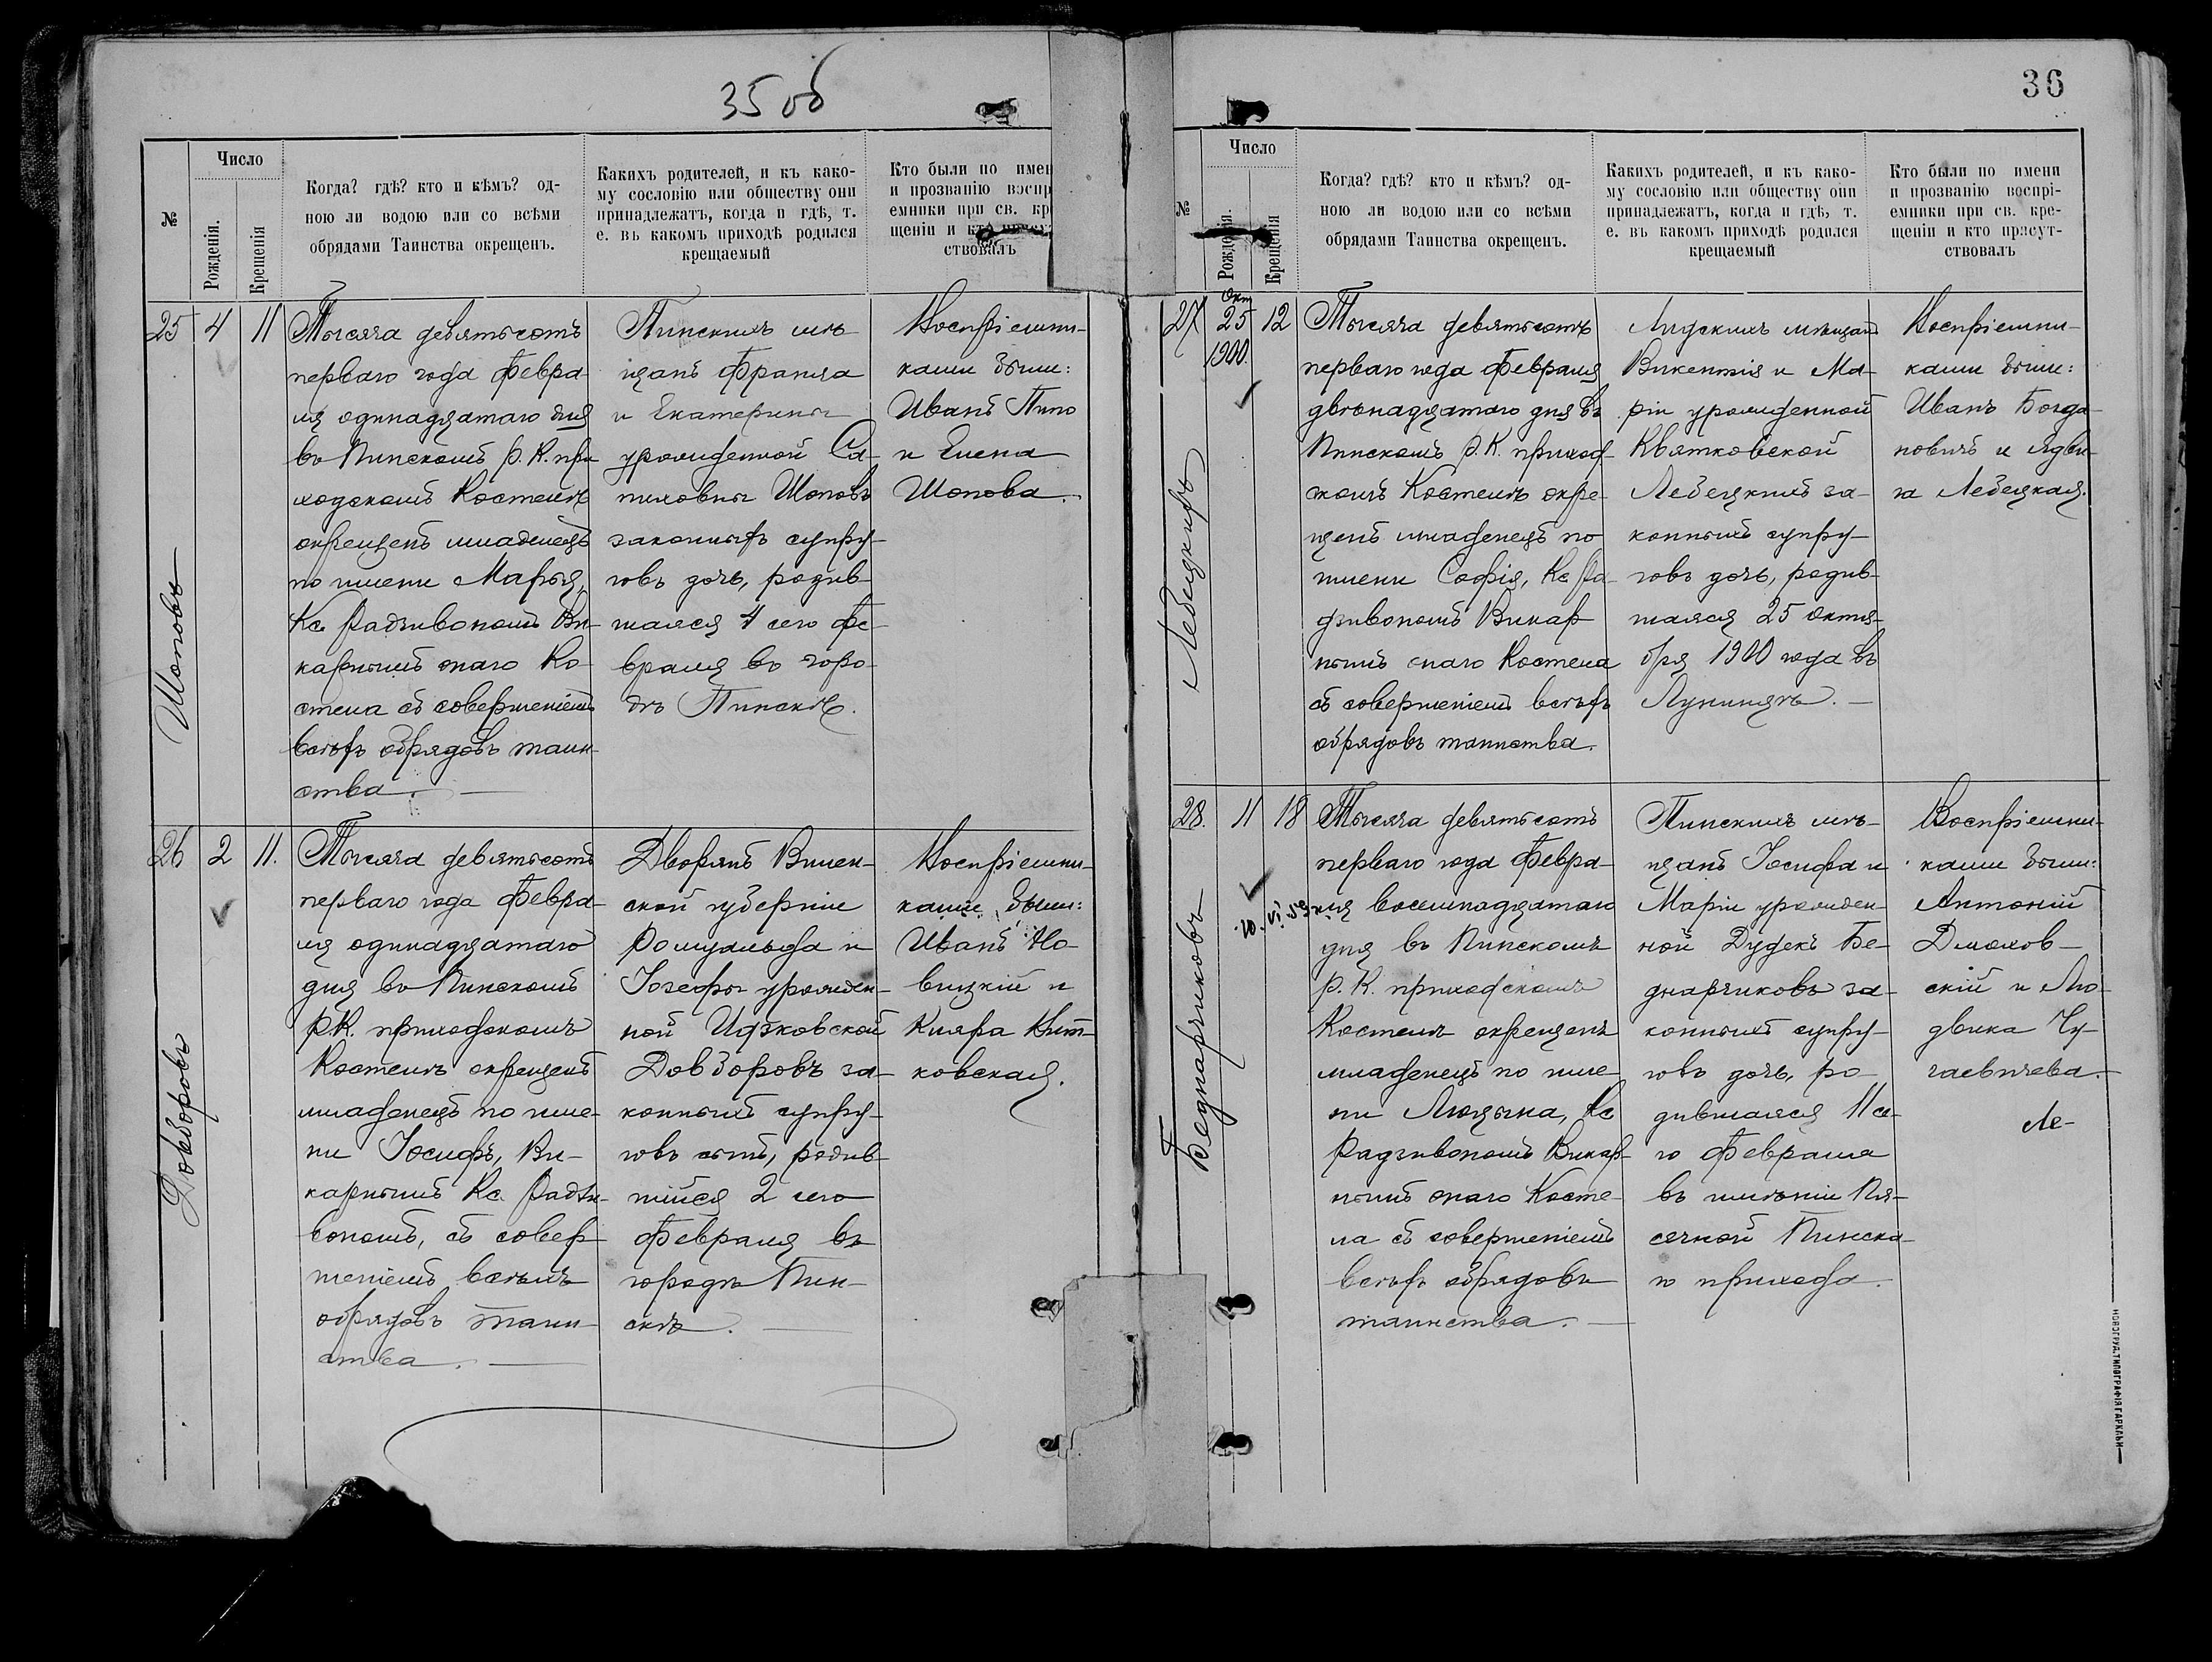 35 об
№
Число
Рожденія.
Крещенія
Когда? гдѣ? кто и кѣмъ? од-
ною ли водою или со всѣми
обрядами Таинства окрещенъ.
Какихъ родителей, и къ како-
му сословію или обществу они
принадлежатъ, когда и гдѣ, т.
е. въ какомъ приходѣ родился
крещаемый
Кто были по имен
и прозванію воспр
емники при св. кр
щеніи и кто
ствовалъ
25
4
11
Шоповъ
Тысяча девятьсотъ
перваго года Февра-
ля одинадцатаго дня
въ Пинскомъ Р. К. при
ходскомъ Костелѣ
окрещенъ младенецъ
по имени Марья,
Кс. Радзивономъ Ви-
карнымъ онаго Ко-
стела съ совершеніемъ
всѣхъ обрядовъ таин-
ства.
Пинскихъ мѣ-
щанъ Франца
и Екатерины
урожденной Са-
Шоповъ
законныхъ супру-
говъ дочь, родив-
шаяся 4 сего Фе-
враля въ горо-
дѣ Пинскѣ.
Воспріемни-
ками были:
Иванъ Пипо
и Елена
Шопова.
26
2
11.
Довборовъ
Тысяча девятьсотъ
перваго года Февра-
ля одинадцатаго
дня въ Пинскомъ
Р.К. приходскомъ
Костелѣ окрещенъ
младенецъ по име-
ни Іосифъ, Ви-
карнымъ Кс. Радзи-
вономъ, съ совер-
шеніемъ всѣхъ
обрядовъ таин-
ства.
Дворянъ Вилен-
ской губерніи
Ромуальда и
Іозефы урожден-
ной Ицковской
Довборовъ за-
конныхъ супру-
говъ сынъ, родив-
шійся 2 сего
Февраля въ
городѣ Пин-
скѣ.
Воспріемни-
ками были:
Иванъ Но-
вицкій и
Кляра Вит-
ковская.
36
№
Число
Рожденія.
Крещенія
Когда? гдѣ? кто и кѣмъ? од-
ною ли водою или со всѣми
обрядами Таинства окрещенъ.
Какихъ родителей, и къ како-
му сословію или обществу они
принадлежатъ, когда и гдѣ, т.
е. въ какомъ приходѣ родился
крещаемый
Кто были по имени
и прозванію воспрі-
емники при св. кре-
щеніи и кто присут-
ствовалъ
27
Окт
25
1900.
12
Лебецкихъ
Тысяча девятьсотъ
перваго года Февраля
двѣнадцатаго дня въ
Пинскомъ Р. К. приход-
скомъ Костелѣ окре-
щенъ младенецъ по
имени Софія, Кс. Ра-
дзивономъ Викар-
нымъ онаго Костела
съ совершеніемъ всѣхъ
обрядовъ таинства.
Лидскихъ мѣщанъ
Викентія и Ма-
ріи урожденной
Квятковской
Лебецкихъ за-
конныхъ супру-
говъ дочь, родив-
шаяся 25 Октя-
бря 1900 года въ
Лунинцѣ.
Воспріемни-
ками были:
Иванъ Богда-
новичъ и Ядви-
га Лебецкая.
28.
11
18
10.VI 59
Беднарчиковъ
Тысяча девятьсотъ
перваго года Февра-
ля восемнадцатаго
дня въ Пинскомъ
Р. К. приходскомъ
Костелѣ окрещенъ
младенецъ по име-
ни Люцына, Кс
Радзивономъ Викар-
нымъ онаго Косте-
ла съ совершеніемъ
всѣхъ обрядовъ
таинства.
Пинскихъ мѣ-
щанъ Іосифа и
Маріи урожден-
ной Дудекъ Бе-
днарчиковъ за-
конныхъ супру-
говъ дочь, ро-
дившаяся 11 се-
го Февраля
въ имѣніи Пя-
сечной Пинска-
го прихода.
Воспріемни-
ками были:
Антоній
Дмохов-
скій и Лю-
двика Чу-
гаевичева.
Ле-
НОВОГРУД. ТИПОГРАФІЯ ГАРКАВИ